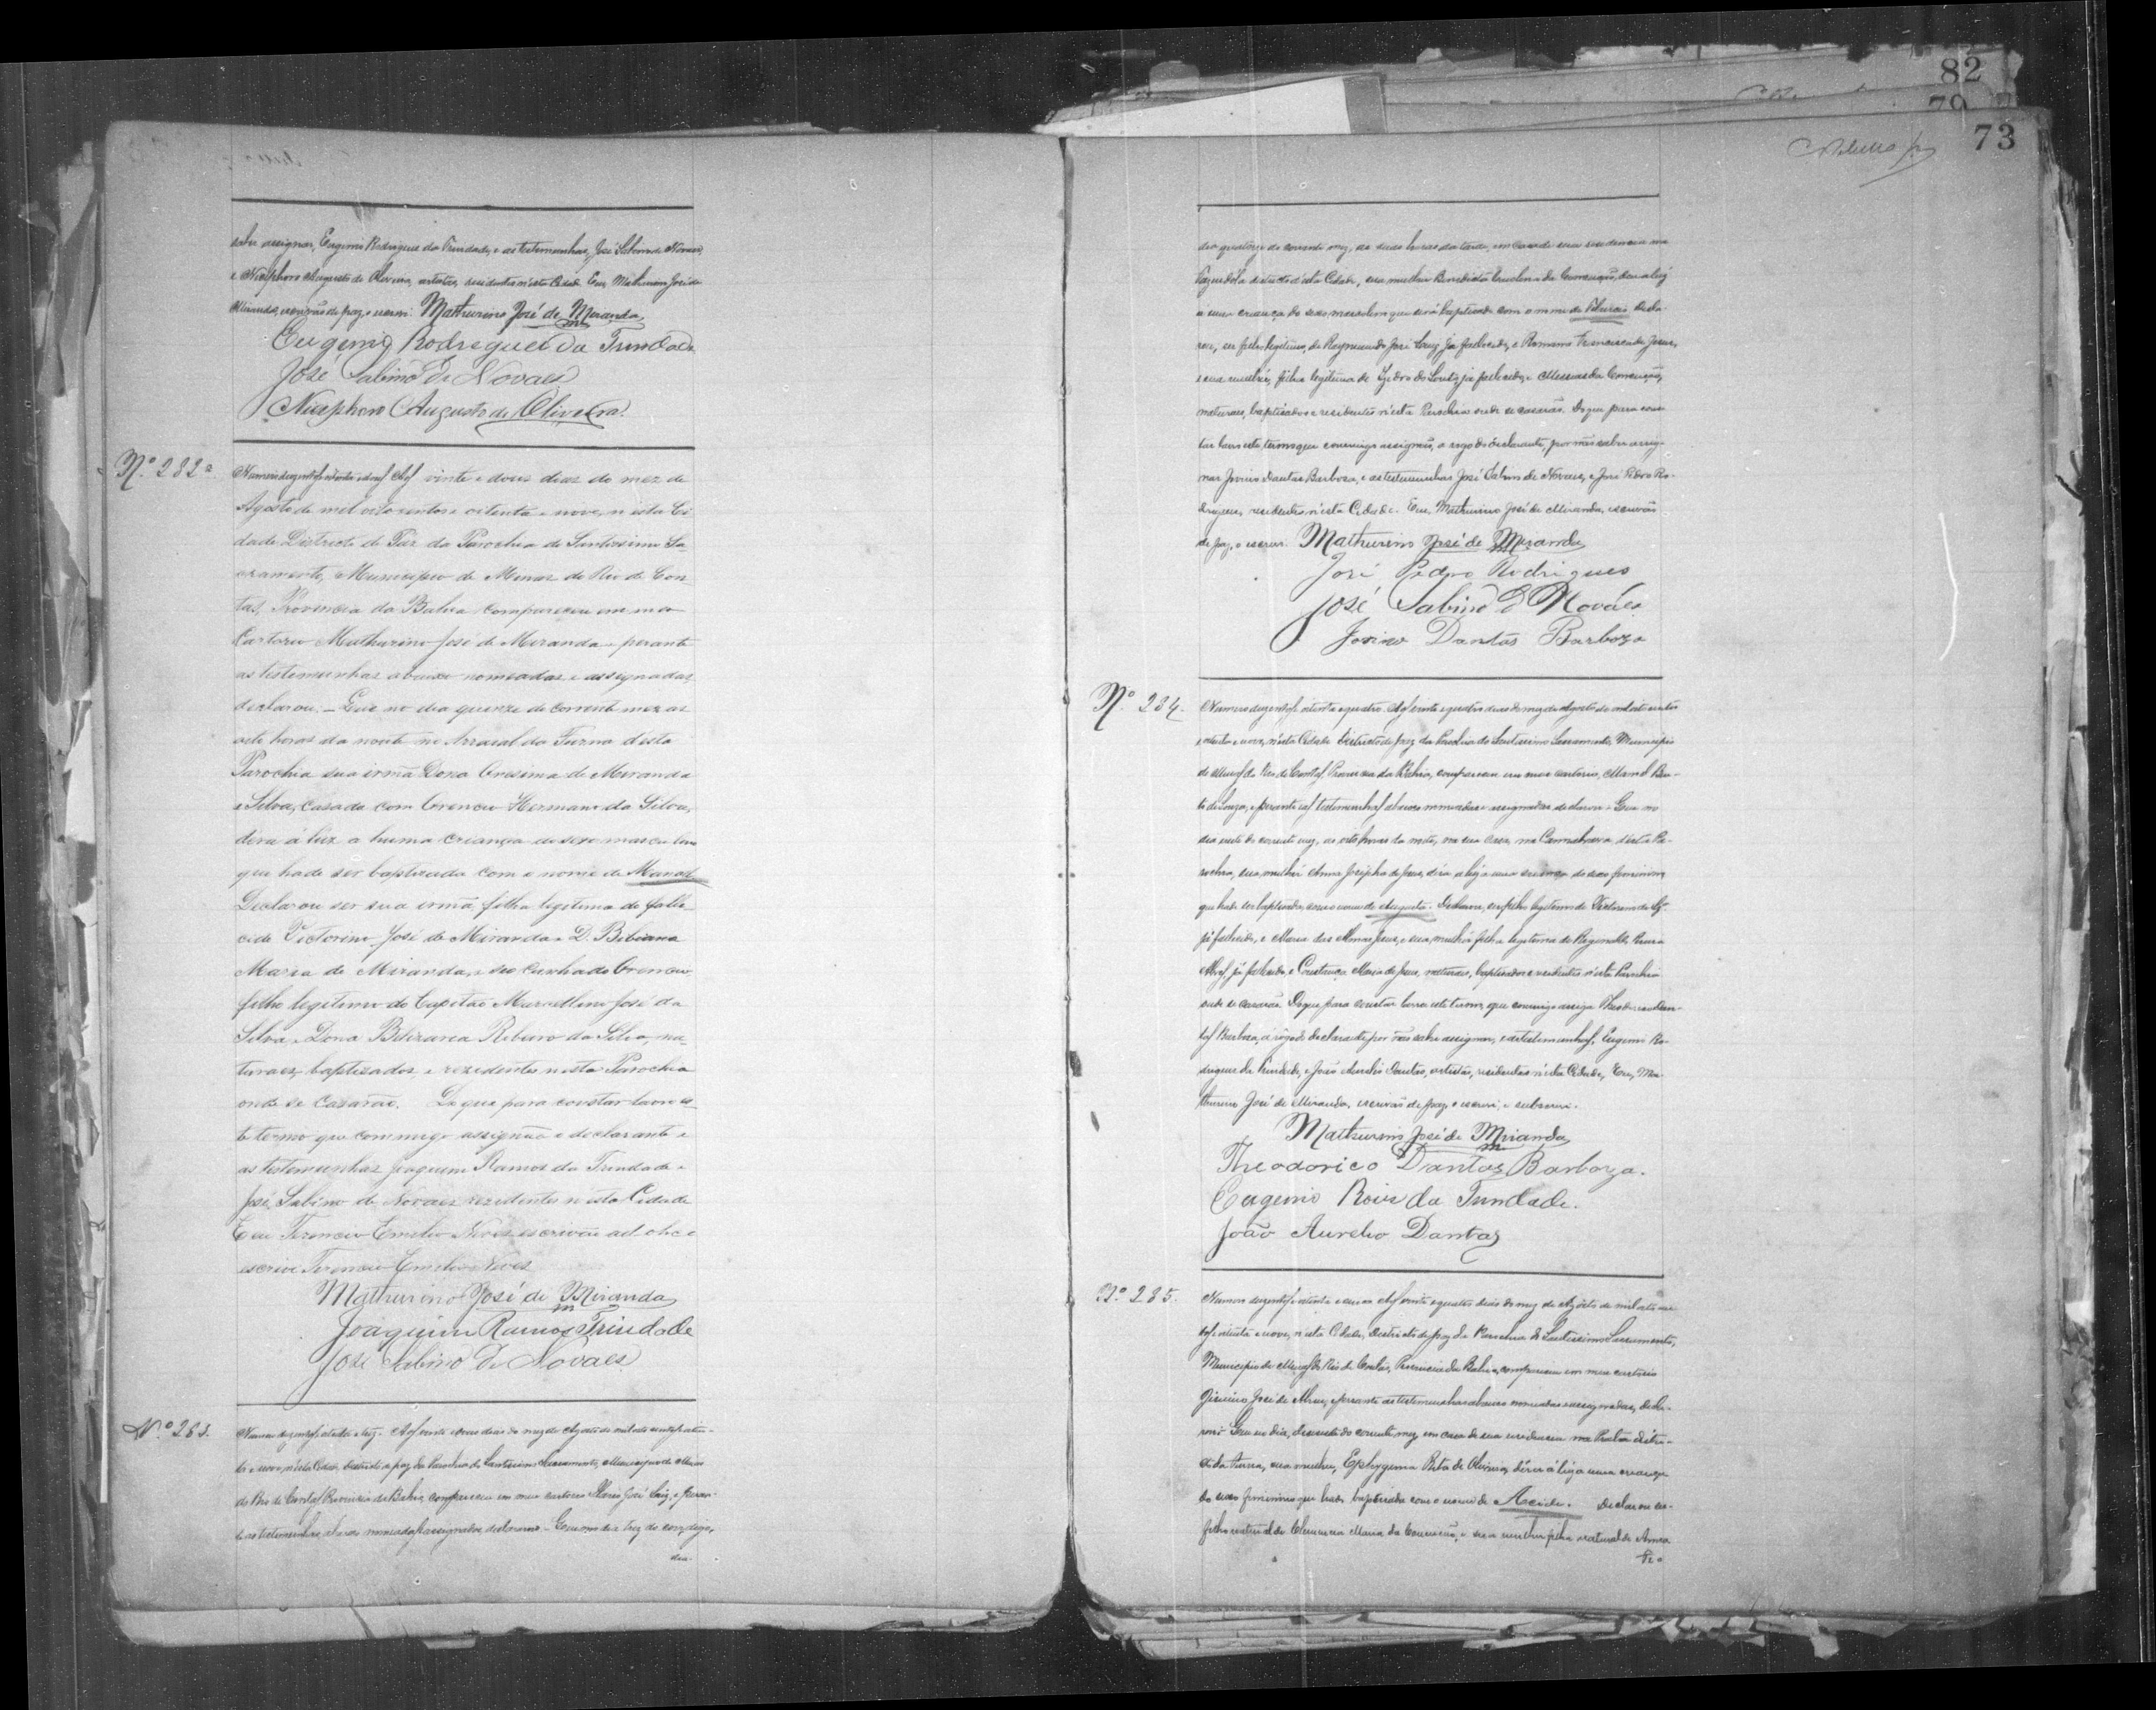 sabe assignar, Eugenio Rodrigues da Trindade, e as testemunhas, José Sabino de Novaes,
e Nicephoro Augusto de Oliveira, artistas, residentes n'esta Cidade. Eu, Mathurino José de
Miranda, escrivão de paz, o escrevi. Mathurino José de Miranda
Eugenio Rodrigues da Trindade
José Sabino de Novaes
Nicephoro Augusto de Oliveira.
Nº 282
Numero duzentos e oitenta e dous. Aos vinte e dous dias do mez de
Agosto de mil oito centos e oitenta e nove, n'esta Ci
dade Districto de Paz da Parochia do Santissimo Sa
cramento, Municipio de Minas do Rio de Con
tas, Provincia da Bahia compareceu em meo
Cartorio Mathurino José de Miranda e perante
as testemunhas abaixo nomeadas, e assignadas,
declarou. - Que no dia quinze do corrente mez as
oito horas da noute no Arraial da Furna desta
Parochia sua irmã Dona Onesima de Miranda
e Silva, casada com Orencio Hermano da Silva,
dera á luz a huma criança do sexo masculino
que hade ser baptizada com o nome de Manoel
Declarou ser sua irmã filha legitima do falle
cido Victorino José de Miranda e D. Bibiana
Maria de Miranda, e seo cunhado Orencio
filho legitimo do Capitão Marcellino José da
Silva e Dona Belizaria Ribeiro da Silva, na-
turaes, baptizados, e rezidentes nesta Parochia
onde se casarão. Do que para constar lavro es-
te termo que commigo assignão o declarante e
as testemunhas Joaquim Ramos da Trindade e
José Sabino de Novaes rezidentes n'esta Cidade
Eu Terencio Emilio Neves escrivão ad hoc o
escrevi Terencio Emilio Neves
Mathurino José de Miranda
Joaquim Ramos Trindade
José Sabino de Novaes
Nº 283.
Numero duzentos e oitenta e trez. Aos vinte e dous dias do mez de Agosto de mil oito centos e oiten-
ta e nove, n'esta Cidade, Districto de paz da Parochia do Santissimo Sacramento, Municipio de Minas
do Rio de Contas, Provincia da Bahia, compareceu em meu cartorio José Luiz, e peran-
te as testemunhas, abaixo nomeadas e assignadas, declarou - Que no dia trez do corr digo,
dia
82
79
73
dia quatorze do corrente mez, as duas horas da tarde, em casa de sua residencia na
districto d'esta Cidade, sua mulher Benedicta da Conceição, deu a luz
a uma criança do sexo masculino que será baptisada com o nome de Decla-
rou, ser filho legitimo, de Raymundo José Luiz, já fallecido, e Romana Francisca de Jesus,
e sua mulher, filha legitima de já fallecido, e Messias da Conceição,
naturaes, baptisados e residentes n'esta Parochia onde se casarão. Do que para cons-
tar lavro este termo que commigo assignão, a rogo do declarante, por não saber assig-
nar Jovino Dantas Barboza, e as testemunhas José Sabino de Novaes, e José Pedro Ro-
drigues, residentes n'esta Cidade. Eu, Mathurino José de Miranda, escrivão
de paz, o escrevi. Mathurino José de Miranda
José Pedro Rodrigues
José Sabino de Novaes
Jovino Dantas Barboza
Nº 284.
Numero duzentos e oitenta e quatro. Aos vinte e quatro dias do mez de Agosto de mil oito centos
e oitenta e nove, n'esta Cidade Districto de paz da Parochia do Santissimo Sacramento, Municipio
de Minas do Rio de Contas, Provincia da Bahia, compareceu em meu cartorio, Manoel
de Souza, e perante as testemunhas abaixo nomeadas e assignadas declarou - Que no
dia sete do corrente mez, as oito horas da noite, na sua casa, na d'esta Pa-
rochia, sua mulher Anna Josepha de Jesus, déra a luz a uma criança do sexo feminino,
que hade ser baptisada, com o nome de Augusta. Declarou, ser filho legitimo de Victorino de
já fallecido, e Maria das Almas Jesus, e sua mulher filha legitima de Reginaldo
Alves já fallecido, e Constança Maria de Jesus, naturaes, baptisados e residentes n'esta Parochia
onde se casarão. Do que para constar lavro este termo, que commigo assigna Theodorico Dan-
tas Barboza, a rogo do declarante por não saber assignar, e as testemunhas, Eugenio Ro-
drigues da Trindade, e João Aurelio Dantas, artistas, residentes n'esta Cidade, Eu, Ma-
thurino José de Miranda, escrivão de paz, o escrevi, e subscrevi.
Mathurino José de Miranda
Theodorico Dantas Barboza.
Eugenio Roiz da Trindade.
João Aurelio Dantas
Nº 285.
Numero duzentos e oitenta e cinco Aos vinte e quatro dias do mez de Agosto de mil oito cen
tos e oitenta e nove, n'esta Cidade, Districto de paz da Parochia do Santissimo Sacramento,
Municipio de Minas do Rio de Contas, Provincia da Bahia, compareceu em meu cartorio
José de Abreu, e perante as testemunhas abaixo nomeadas e assignadas, decla-
rou - Que no dia, dezesete do corrente mez, em casa de sua residencia na Prata distri-
cto da Furna, sua mulher, Ephygenia Rita de Oliveira, déra á luz a uma criança
do sexo feminino que hade baptisada com o nome de Declarou ser
filho natural de Clemencia Maria da Conceição, e sua mulher filha natural de Anna